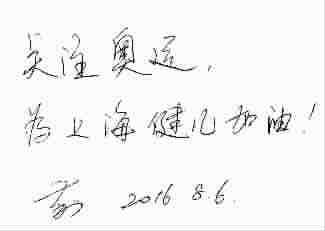 关注奥运，
为上海健儿加油！
2016 8.6.